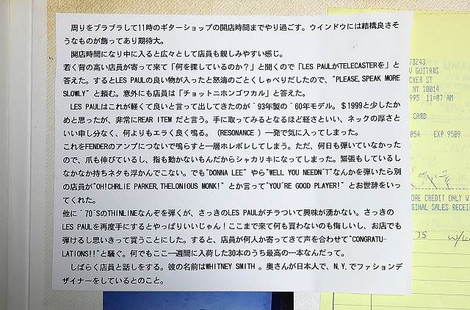 周りをブラブラして11時のギターショップの開店時間までやり過ごす。ウインドウには結構良さそ
うなものが飾ってあり期待大。
開店時間になり中に入ると広々として店員も親しみやすい感じ。
若く背の高い店員が寄って来て「何を探しているのか?」と聞くので「LES PAULかTELECASTERを」と
答えた。するとLES PAULの良い物が入ったと怒涛のごとくしゃべりだしたので、"PLEASE, SPEAK MORE
SLOWLY" と頼む。意外にも店員は「チョットニホンゴワカル」と答える。
LES PAULはこれが軽くて良いと言って出してきたのが '93年製の '60年モデル。$1999と少したか
めと思ったが、非常にREAR ITEM だと言う。手に取ってみるとなるほど軽さといい、ネックの厚さと
いい申し分なく、何よりもエラく良く鳴る。(RESONANCE) 一発で気に入ってしまった。
これをFENDERのアンプにつないで鳴らすと一層ホレボレしてしまう。ただ、何日も弾いていなかった
ので、爪も伸びているし、指も動かないもんだからシャカリキになってしまった。緊張もしているし
なかなか持ちネタも浮かんでこない。でも"DONNA LEE" やら"WELL YOU NEEDN'T"なんかを弾いたら別
の店員が"OH!CHRLIE PARKER,THELONIOUS MONK!" とか言って"YOU'RE GOOD PLAYER!"とお世辞をいっ
てくれた。
他に '70'SのTHINLINEなんぞを弾くが、さっきのLES PAULがチラついて興味が湧かない。さっきの
LES PAULを再度手にするとやっぱりいいじゃん!ここまで来て何も買わないのも悔しいし、お店でも
弾けるし思いきって買うことにした。すると、店員が何人か寄ってきて声を合わせて"CONGRATU-
LATIONS!!"と騒ぐ。何でもここ一週間に入荷した30本のうち最高の一本なんだって。
しばらく店員と話しをする。彼の名前はWHITNEY SMITH 。奥さんが日本人で、N.Y.でファッションデ
ザイナーをしているとのこと。
73243
GUITARS
10014
11:07 AM
CARD
EXP 9509
CREDIT ONLY
SALES RECE